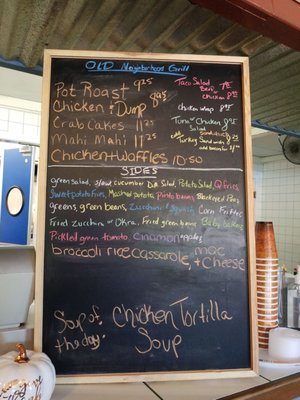 OLD Neighborhood Grill
Pot Roast 9.25
Chicken & Dump 9.25
Crab Cakes 11.25
Mahi Mahi 11.25
Chicken + Waffles 10.50
Taco Salad
Beef
chicken
Chicken wrap
Tuna or Chicken
Salad
Sandwiches
Turkey Sandwich
SIDES
green salad, slaw cucumber Dill Salad, Potato Salad, Q Fries
Sweet potato Fries, Mashed potatoes, Pinto beans, Blackeyed Peas,
greens, green beans, Zucchini & Squash, Corn Fritters
Fried Zucchini or Okra, Fried green beans, Baby bakers
Pickled green tomato, Cinnamon apples
broccoli rice casserole, mac
+ Cheese
Soup of
the day.
Chicken Tortilla
Soup